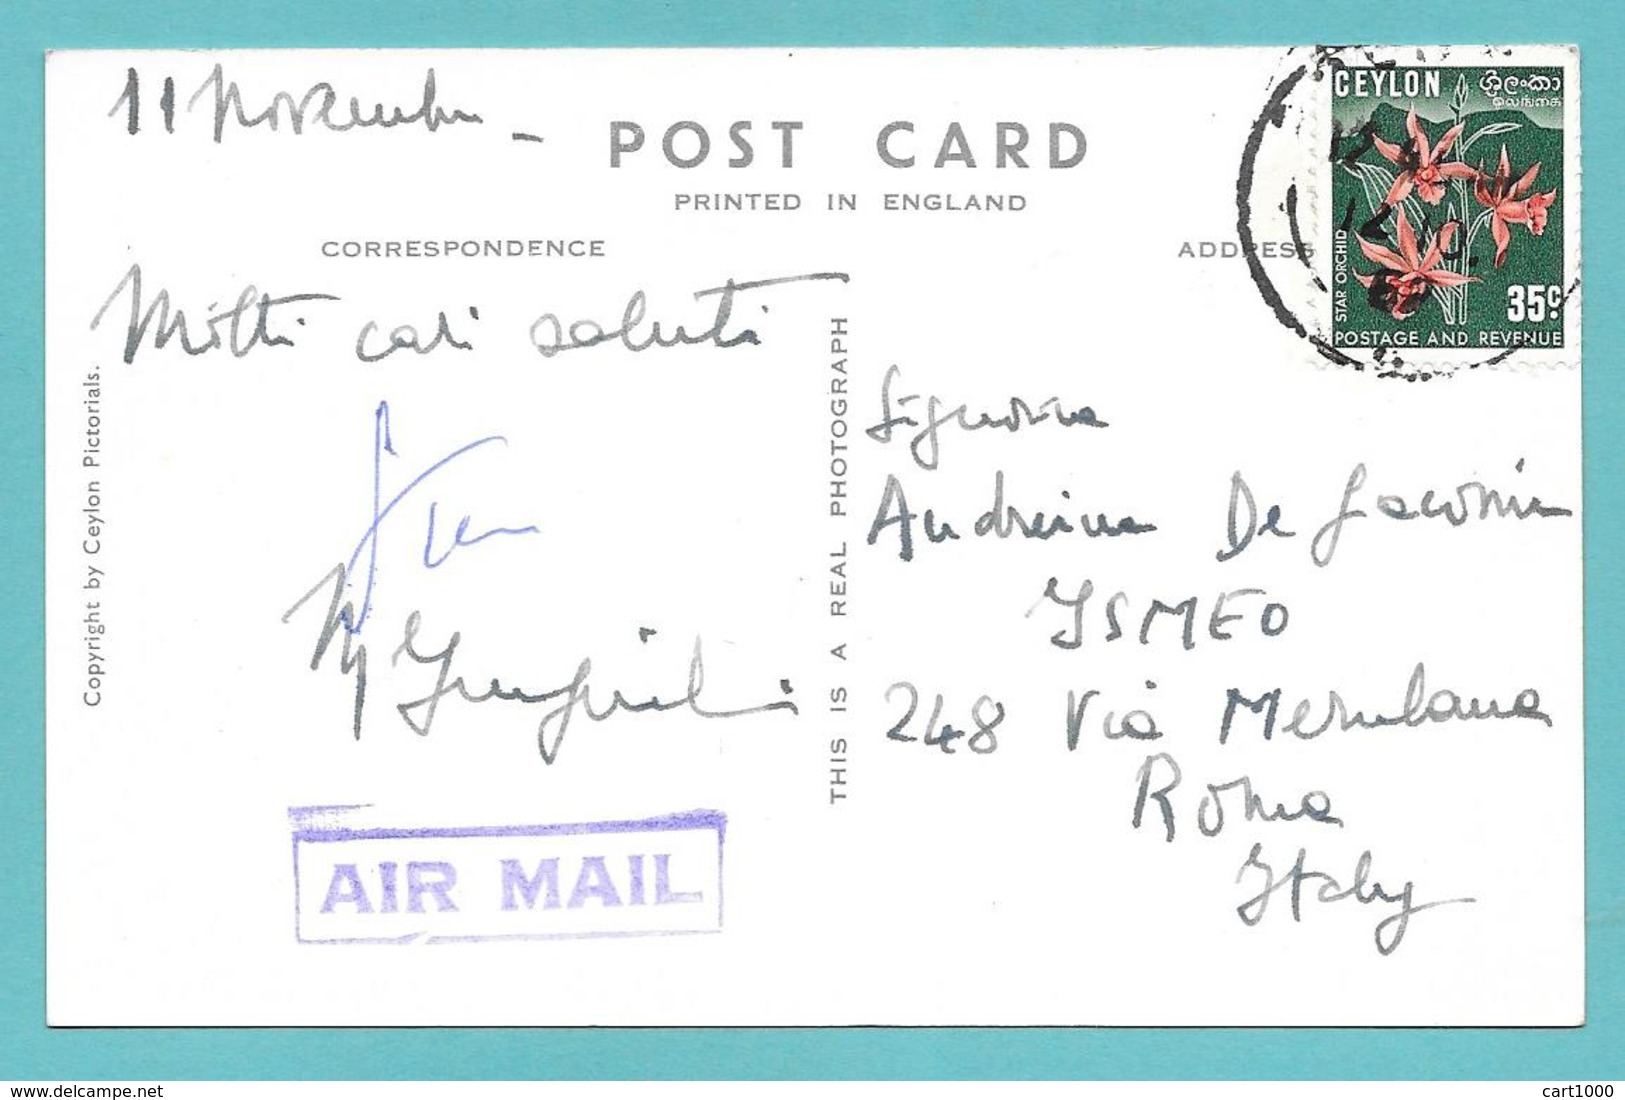 11 Novembre -
POST CARD
PRINTED IN ENGLAND
CORRESPONDENCE
ADDRESS
Molti cari saluti
Copyright by Ceylon Pictorials.
THIS IS A REAL PHOTOGRAPH
AIR MAIL
CEYLON ශ්‍රී ලංකා
இலங்கை
STAR ORCHID
35c.
POSTAGE AND REVENUE
Signorina
Andreina De
ISMEO
248 Via Merulana
Roma
Italy
delcampe.net
cart1000